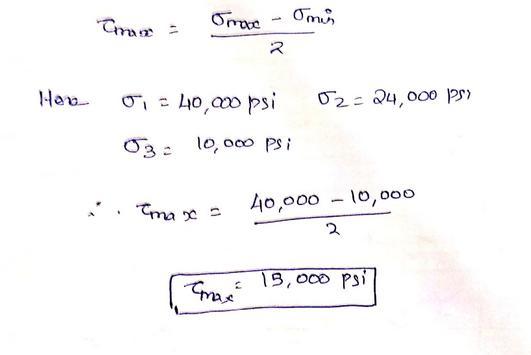 τmax = σmax - σmin / 2
Here σ1 = 40,000 psi σ2 = 24,000 psi
σ3 = 10,000 psi
∴ τmax = 40,000 - 10,000 / 2
τmax = 15,000 psi